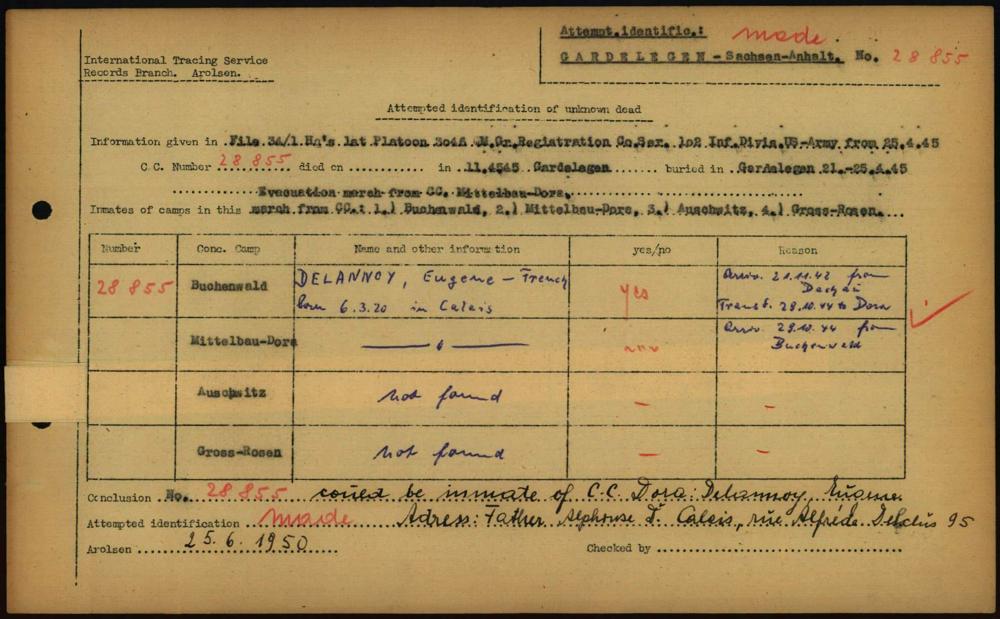 Attempt.identific.: made
International Tracing Service
Records Branch. Arolsen.
GARDELEGEN - Sachsen-Anhalt. No. 28 855
Attempted identification of unknown dead
Information given in File 34/1 Hq's 1st Platoon 3046 M.Gr.Registration Co.Ser. 102 Inf.Divis.US-Army from 25.4.45
C.C. Number 28 855 died on ............ in 11.4545 Gardelegen ....... buried in Gardelegen 21.-25.4.45
Evacuation march from CC. Mittelbau-Dora,
Inmates of camps in this march from CC.: 1.) Buchenwald, 2.) Mittelbau-Dora, 3.) Auschwitz, 4.) Gross-Rosen.
Number Conc. Camp Name and other information yes/no Reason
28 855 Buchenwald DELANNOY, Eugene - French yes Arriv. 21.11.42 from Dachau
born 6.3.20 in Calais Transf. 28.10.44 to Dora
Mittelbau-Dora Arriv. 29.10.44 from Buchenwald
Auschwitz not found - -
Gross-Rosen not found - -
Conclusion No. 28 855 could be inmate of C.C. Dora: Delannoy, Eugene
Attempted identification made Adress: Father Alphonse D. Calais, rue Alfréde Delclus 95
Arolsen 25.6.1950 Checked by